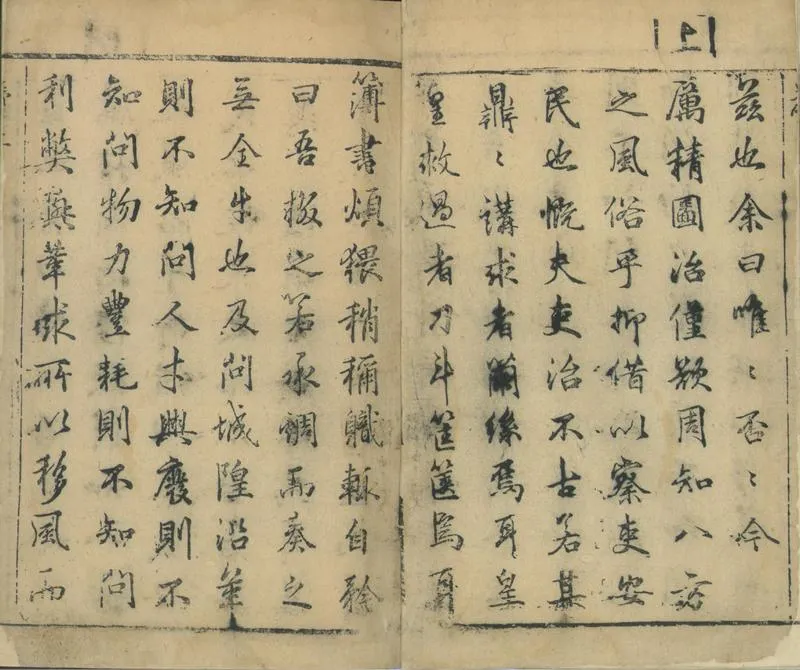 上
茲也余曰唯〻否〻今
厲精圖治僅欲周知八
之風俗乎抑借以察吏安
民也慨夫吏治不古若其
鼎〻講求者繭絲焉耳皇
皇救過者刀斗筐篋焉耳
簿書煩猥稍稱職輒自矜
曰吾掇之若承蜩而奏之
無全牛也及問城隍沿革
則不知問人才興廢則不
知問物力豐耗則不知問
利獘興革所以移風而